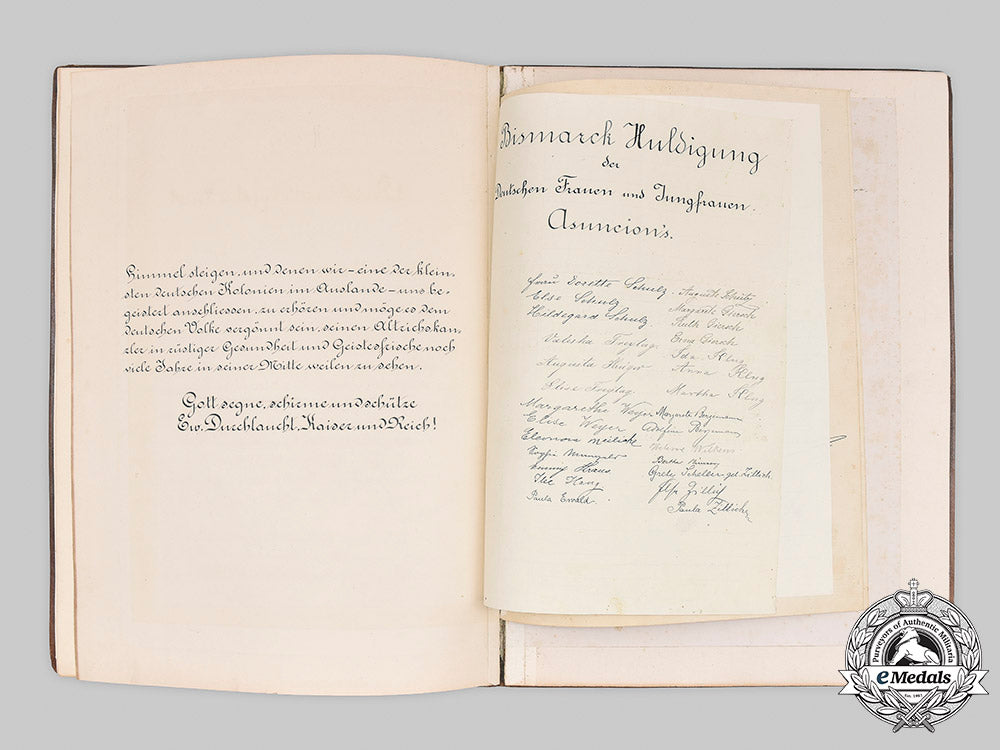 Himmel steigen, und denen wir – eine der klein-
sten deutschen Kolonien im Auslande – uns be-
geistert anschliessen, zu erhören und möge es dem
deutschen Volke vergönnt sein, seinen Altreichskan-
zler in rüstiger Gesundheit und Geistesfrische noch
viele Jahre in seiner Mitte weilen zu sehen.
Gott segne, schirme und schütze
Ew. Durchlaucht, Kaiser und Reich!
Bismarck Huldigung
der
Deutschen Frauen und Jungfrauen.
Asuncion's.
Frau Dorette Schulz
Else Schulz
Hildegard Schulz
Freytag
Augusta
Elise Freytag
Margarethe Weyer
Elise Weyer
Eleonora
Kraus
Ilse
Paula Ewald.
Auguste
Margarete
Ruth
Erna
Ida Klug
Anna Klug
Martha Klug
Margarete Bergmann
Bergmann
Helene
Bertha
Grete geb.
Paula
Purveyors of Authentic Militaria
eMedals